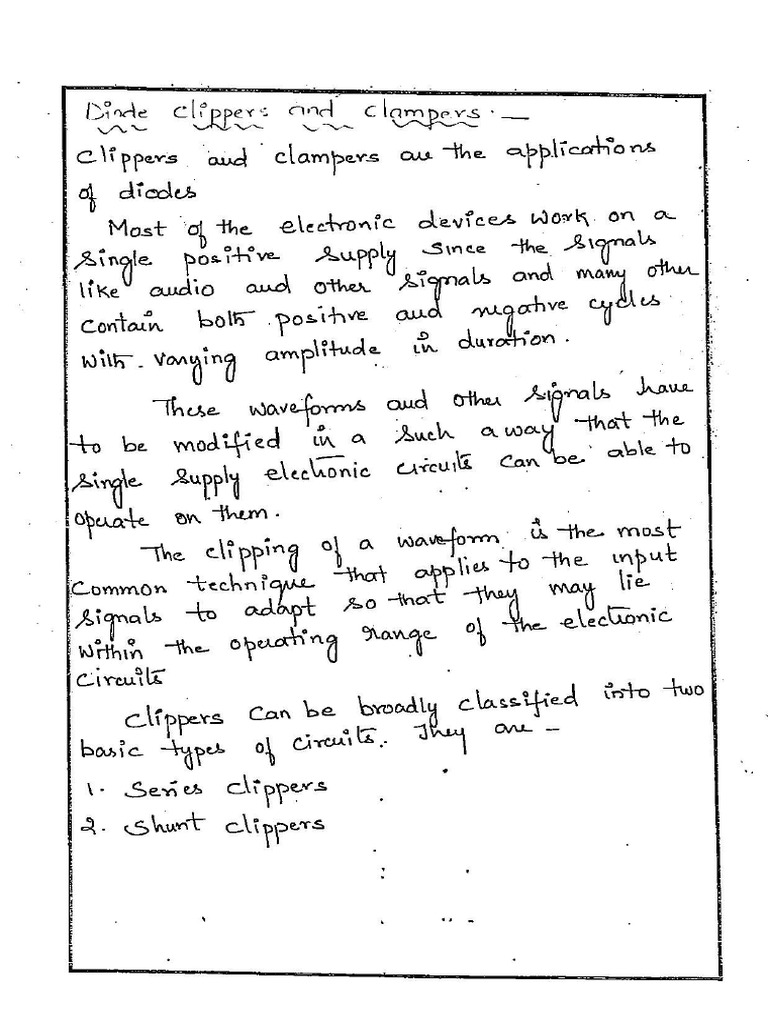 Diode Clippers and Clampers. —
Clippers and clampers are the applications
of diodes
Most of the electronic devices work on a
single positive supply since the signals
like audio and other signals and many other
contain both positive and negative cycles
with varying amplitude in duration.
These waveforms and other signals have
to be modified in a such a way that the
single supply electronic circuits can be able to
operate on them.
The clipping of a waveform is the most
common technique that applies to the input
signals to adapt so that they may lie
within the operating range of the electronic
circuits
Clippers can be broadly classified into two
basic types of circuits. They are –
1. Series clippers
2. Shunt clippers